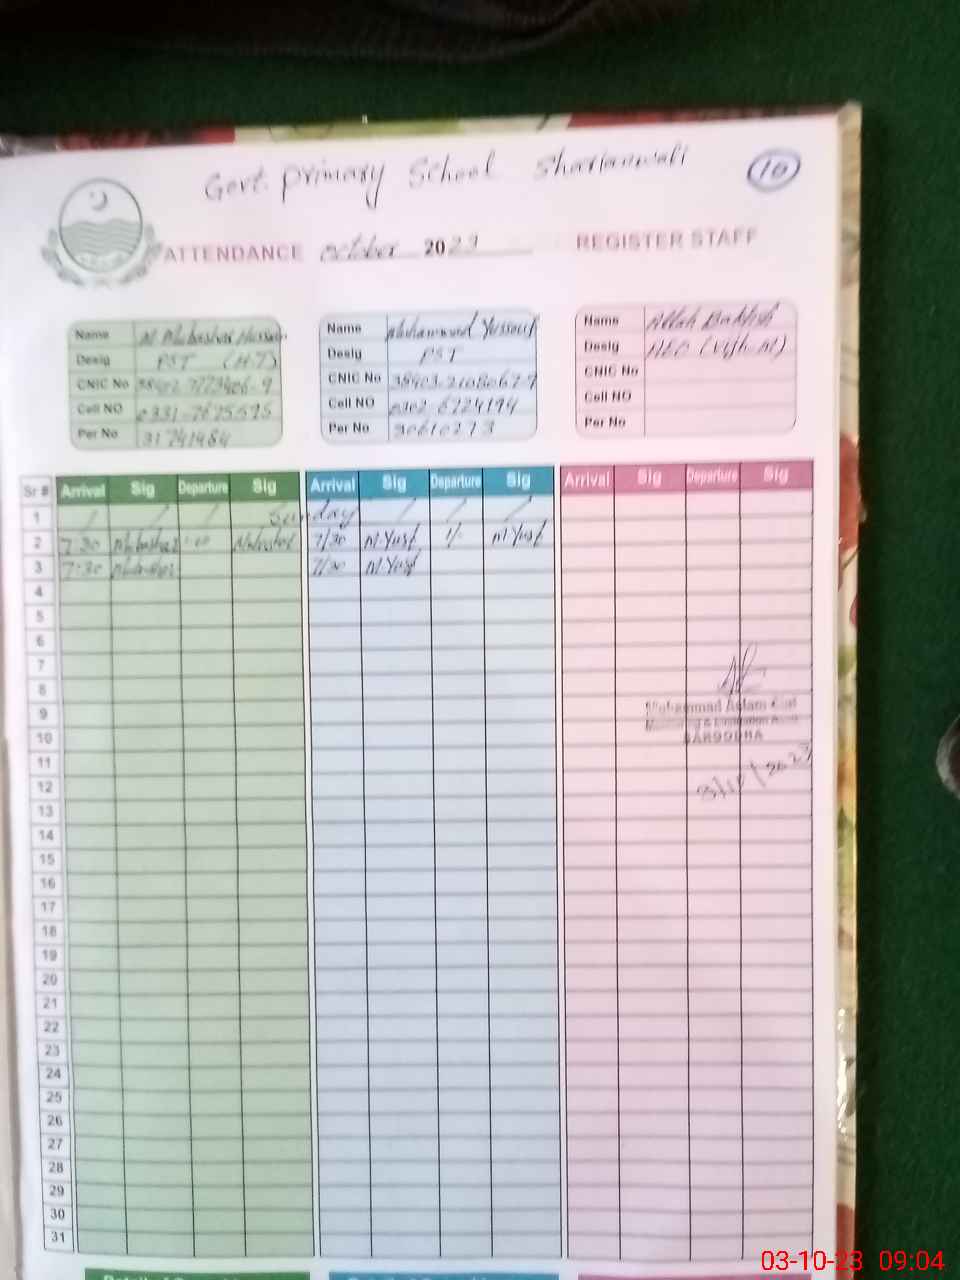 Govt. primary School Sharianwali
10
ATTENDANCE october 2023 REGISTER STAFF
Name M Mubashar Hussain
Desig PST (H.T)
CNIC No
Cell NO 0331-7675595
Per No 31741484
Name Muhammad Yousouf
Desig PST
CNIC No
Cell NO 0302 6724194
Per No 30610273
Name Allah Bakhsh
Desig
CNIC No
Cell NO
Per No
Sr # Arrival Sig Departure Sig Arrival Sig Departure Sig Arrival Sig Departure Sig
1 / / / Sunday / / /
2 7:30 Mubashar Mubashar 7/30 M.Yusf 1/- M Yusf
3 7:30 Mubashar 7/30 M.Yusf
4
5
6
7
8
9 Muhammad Aslam
10 Monitoring & Evaluation
SARGODHA
11
12 3/10/2023
13
14
15
16
17
18
19
20
21
22
23
24
25
26
27
28
29
30
31
03-10-23 09:04